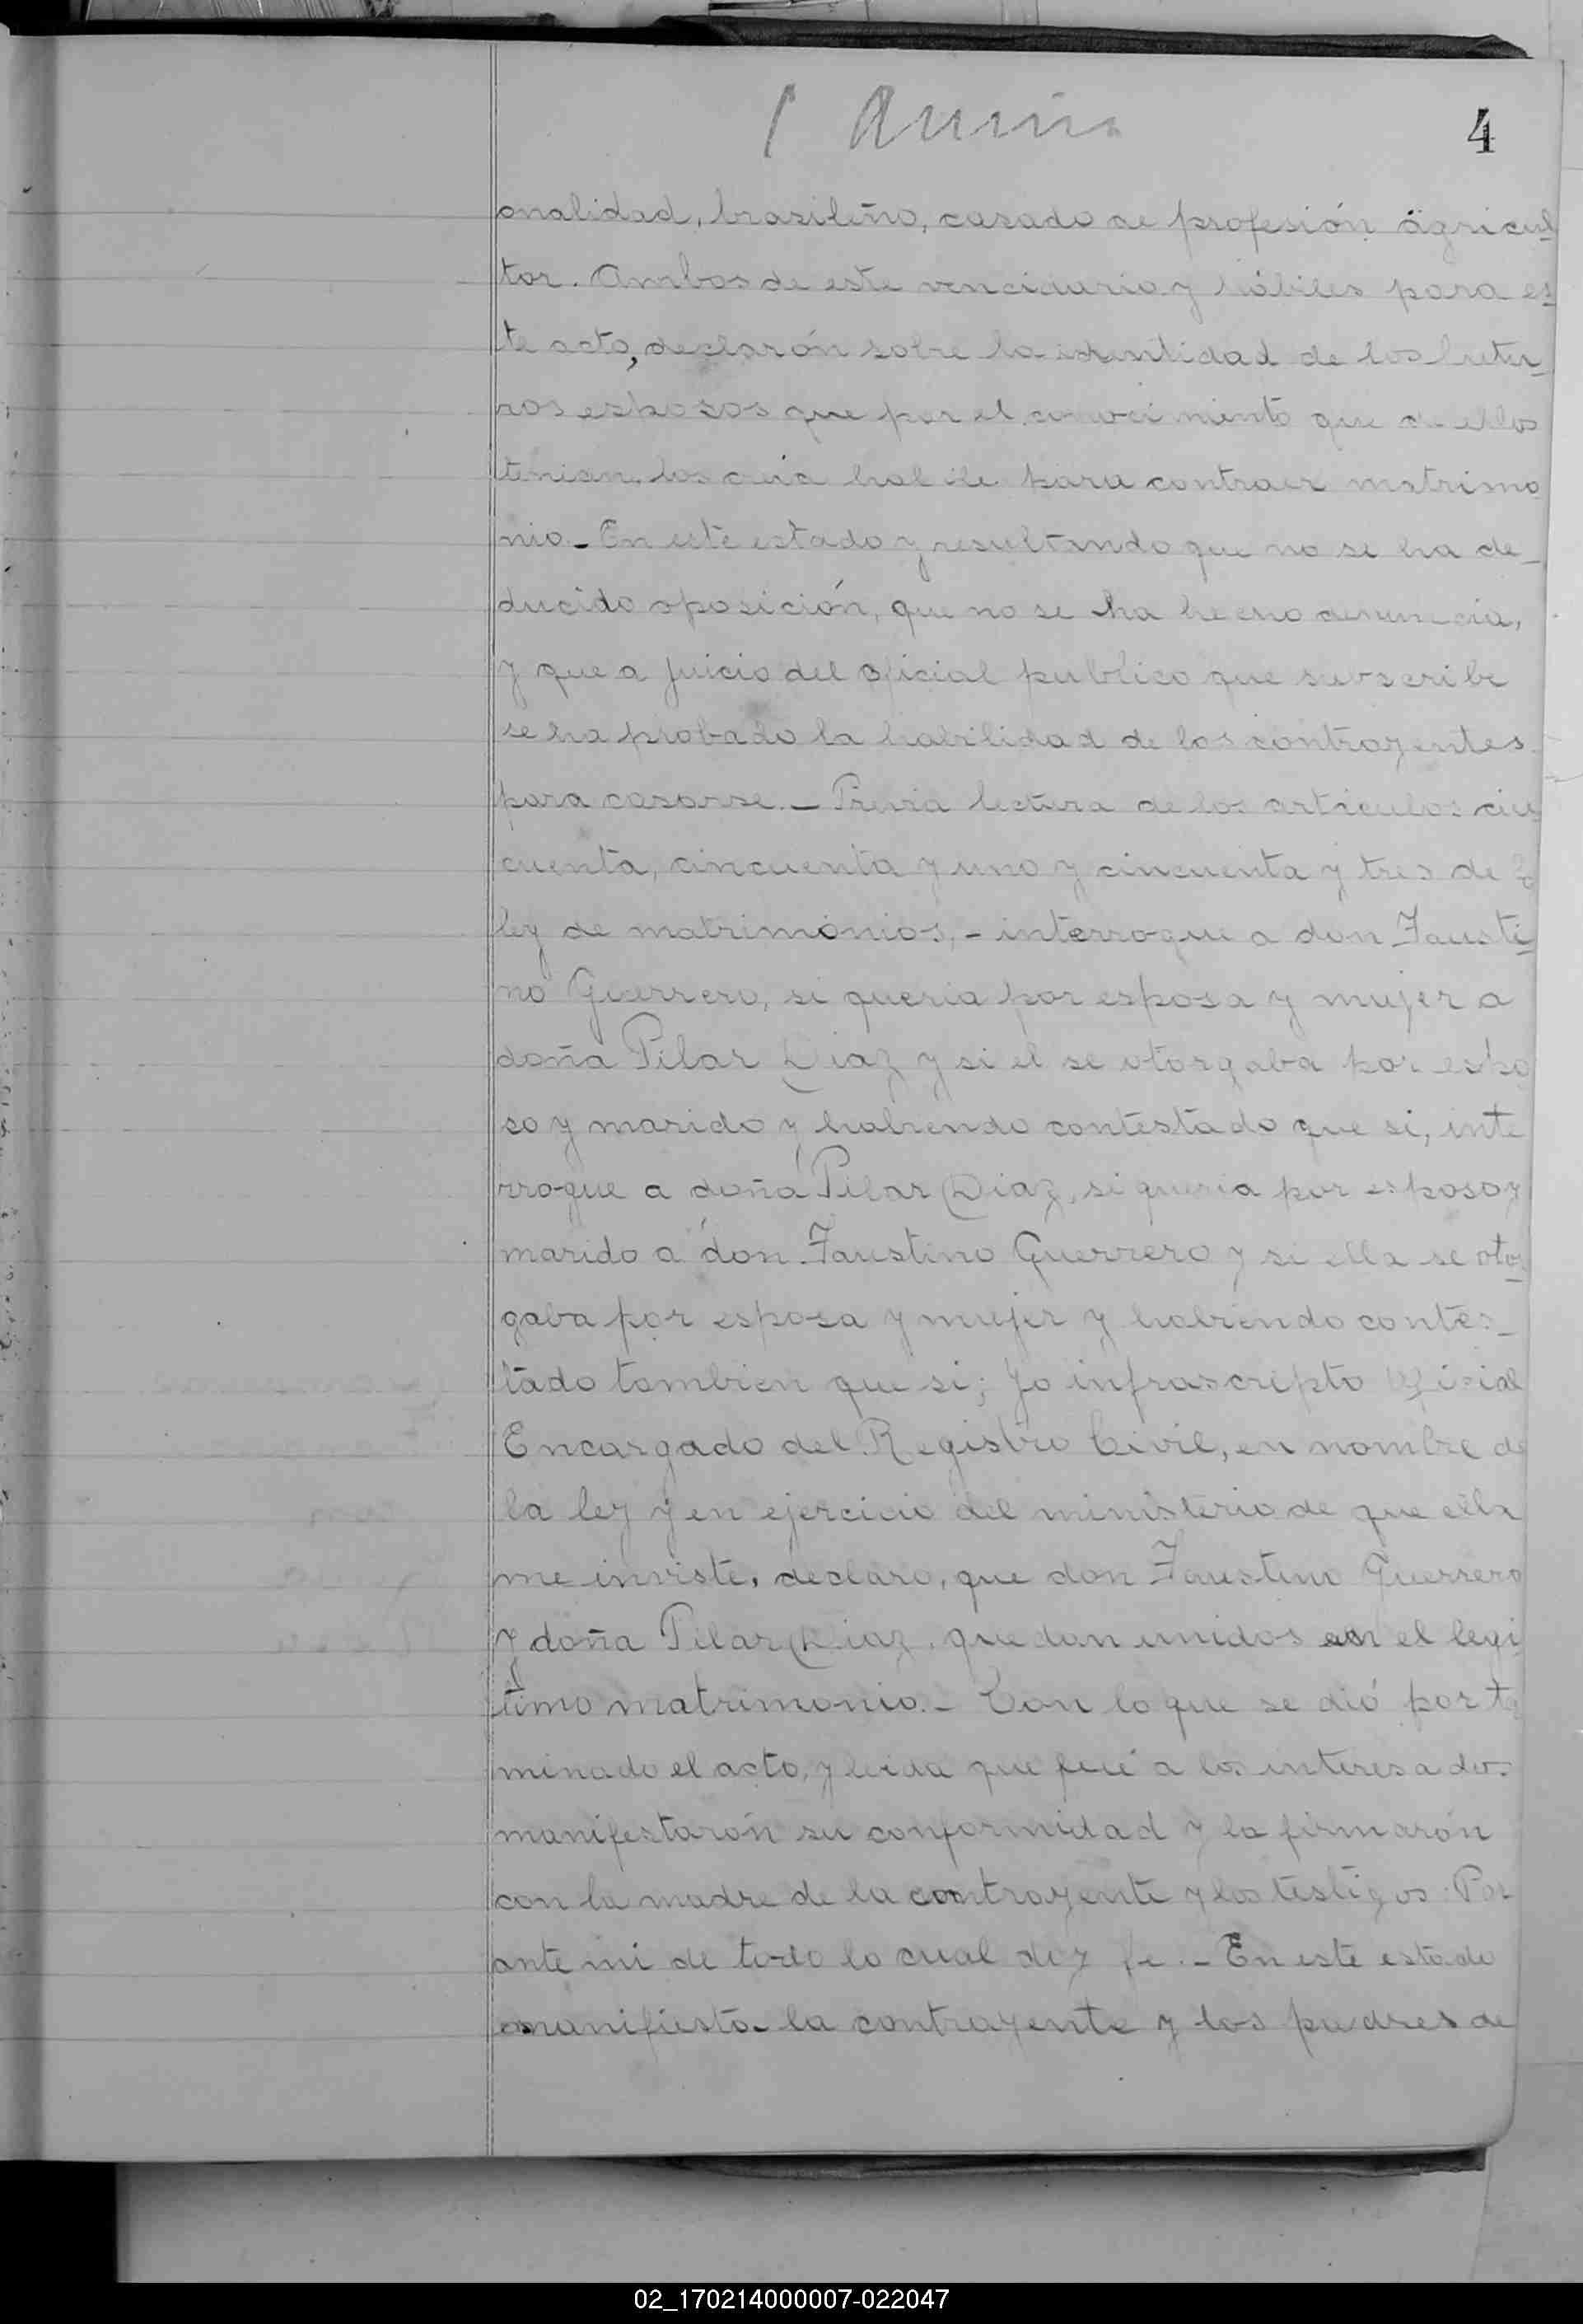 4
onalidad, brasileño, casado de profesión agricul
tor. Ambos de este vencidario y hábiles para es
te acto, declarón sobre la identidad de los
ros esposos que por el conocimiento que de ellos
tenian, los creia habile para contraer matrimo
nio. - En este estado y resultando que no se ha de-
ducido oposición, que no se ha hecho denuncia,
y que a juicio del oficial publico que subscribe
se ha probado la habilidad de los contrayentes
para casarse. - Previa lectura de los articulos cin
cuenta, cincuenta y uno y cincuenta y tres de
ley de matrimonios, - interrogue a don Fausti-
no Guerrero, si queria por esposa y mujer a
doña Pilar Diaz y si el se otorgaba por espo
so y marido y habiendo contestado que si, inte
rrogue a doña Pilar Diaz, si queria por esposo y
marido a don Faustino Guerrero y si ella se otor
gaba por esposa y mujer y habiendo contes-
tado tambien que si; yo infrascripto Oficial
Encargado del Registro Civil, en nombre de
la ley y en ejercicio del ministerio de que ella
me inviste, declaro, que don Faustino Guerrero
y doña Pilar Diaz, quedan unidos en el legi
timo matrimonio. - Con lo que se dió por te
minado el acto, y leida que fué a los interesados
manifestarón su conformidad y la firmarón
con la madre de la contrayente y los testigos. Por
ante mi de todo lo cual doy fe. - En este estado
manifiesto la contrayente y los padres de
02_170214000007-022047